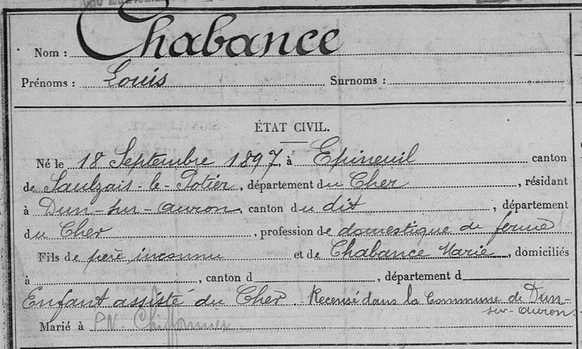 Nom : Chabance
Prénoms : Louis Surnoms :
ÉTAT CIVIL.
Né le 18 Septembre 1897, à Epineuil canton
de Saulzais-le-Potier, département du Cher, résidant
à Dun-sur-Auron, canton du dit, département
du Cher, profession de domestique de ferme
Fils de père inconnu et de Chabance Marie, domiciliés
à , canton d , département d
Enfant assisté du Cher Recensé dans la Commune de Dun-
sur-Auron.
Marié à